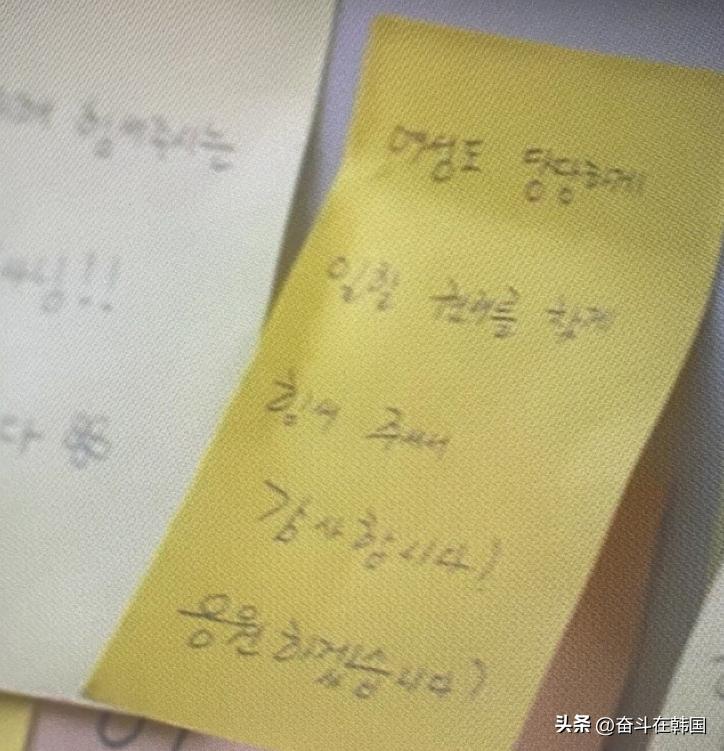 힘써주시는
!!
다
여성도 당당하게
일할 권리를 함께
힘써 주셔서
감사합니다!
응원하겠습니다!
头条 @奋斗在韩国